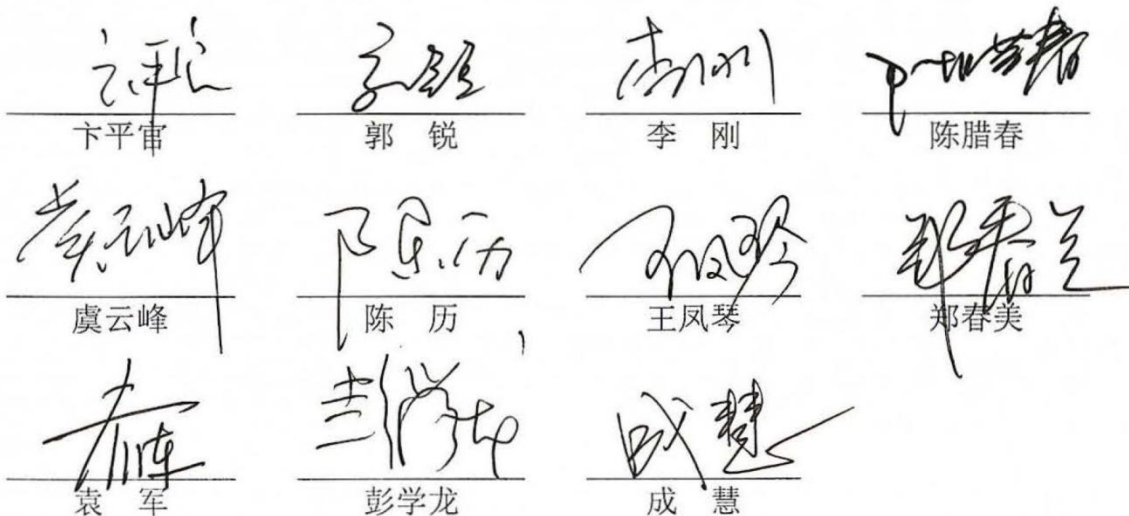 卞平官 郭 锐 李 刚 陈腊春
虞云峰 陈 历 王凤琴 郑春美
袁 军 彭学龙 成 慧